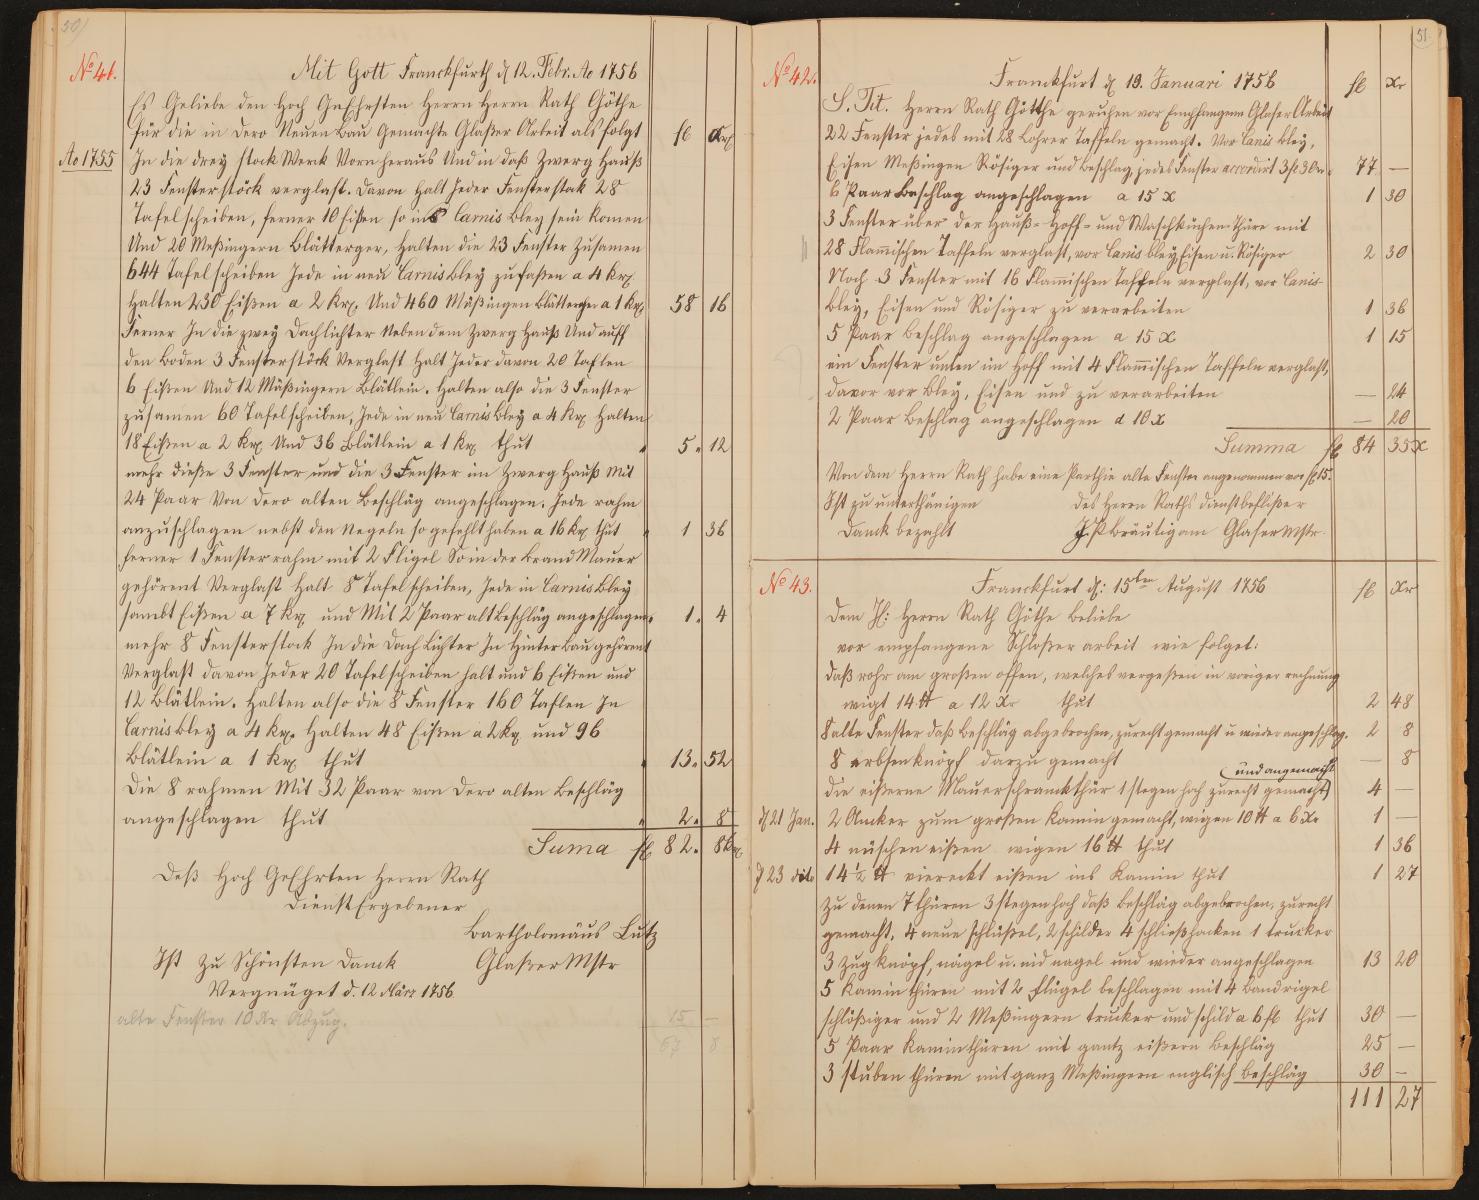 50
No 41.
Mit Gott Franckfurth d 12. Febr. Ao 1756
Es Geliebe den Hoch GeEhrsten Herrn Herrn Rath Göthe
für die in Dero Neuen Bau Gemachte Glaßer Arbeit als folgt
fl Krx
Ao 1755 In die drey stock Werck Vorn heraus Und in daß Zwerg Hauß
23 Fensterstöck verglast. Davon Halt Jeder Fensterstock 28
Tafelscheiben, ferner 10 Eißen so ins Carnis Bley sein komen
Und 20 Meßingern Blätterger, Halten die 23 Fenster Zusamen
644 Tafelscheiben Jede in neu Carnis Bley zu faßen a 4 Krx
Halten 230 Eißen a 2 Krx. Und 460 Mäßingen Blätterger a 1 Krx 58 16
Ferner In die zwey Dachlichter Neben dem Zwerg Hauß Und auff
den Boden 3 Fensterstöck Verglast Halt Jeder davon 20 Taflen
6 Eißen Und 12 Mäßingern Blätlein. Halten also die 3 Fenster
zusamen 60 Tafelscheiben, Jede in neu Carnis Bley a 4 Krx Halten
18 Eißen a 2 Krx Und 36 Blätlein a 1 Krx thut 5. 12
mehr dieße 3 Fenster und die 3 Fenster im Zwerg Hauß Mit
24 Paar Von Dero alten Beschläg angeschlagen. Jede rahm
anzuschlagen nebst den Negeln so gefehlt haben a 16 Krx thut 1 36
ferner 1 Fensterrahm mit 2 Fligel So in der Brand Mauer
gehörent Verglast Halt 8 Tafelscheiben, Jede in Carnis Bley
sambt Eißen a 7 Krx und Mit 2 Paar alt Beschläg angeschlagen 1. 4
mehr 8 Fensterstock In die Dach Lichter In Hinter Bau gehörent
Verglast davon Jeder 20 Tafelscheiben halt und 6 Eißen und
12 Blätlein. Halten also die 8 Fenster 160 Taflen In
Carnis Bley a 4 Krx. Halten 48 Eißen a 2 Krx und 96
Blätlein a 1 Krx thut 13. 52
Die 8 rahmen Mit 32 Paar von Dero alten Beschläg
angeschlagen thut 2. 8
Suma fl 82. 8 Krx
Deß Hoch GeEhrten Herrn Rath
Dienst Ergebener
Bartholomäus Lutz
Ist Zu Schönsten Danck Glaßer Mstr
Vergnüget d. 12 März 1756
alte Fenster 10 Xr Abzug. 15 —
67 8
51.
No 42.
Franckfurt d 19. Januari 1756 fl Xr
S. Tit. Herrn Rath Götthe geruhen vor Empfangene Glaser Arbeit
22 Fenster jedes mit 28 Lohrer Taffeln gemacht. Vor Canis Bley,
Eisen Meßingen Rösiger und Beschlag, jedes Fenster accordirt 3 fl 30 Xr. 77 —
6 Paar Beschlag angeschlagen a 15 X 1 30
3 Fenster über der Hauß- Hoff- und Waschküchen-Thüre mit
28 Flam̄ischen Taffeln verglast, vor Canis bley Eisen u. Rösiger 2 30
Noch 3 Fenster mit 16 Flam̄ischen Taffeln verglast, vor Canis-
bley, Eisen und Rösiger zu verarbeiten 1 36
5 Paar Beschlag angeschlagen a 15 X 1 15
ein Fenster unten im Hoff mit 4 Flam̄ischen Taffeln verglast,
davor vor Bley, Eisen und zu verarbeiten — 24
2 Paar Beschlag angeschlagen d 10 X — 20
Summa fl 84 35 X
Von dem Herrn Rath habe eine Parthie alte Fenster angenommen vor fl 15.
Ist zu unterthänigen Des Herrn Raths dienstbeflißer
Danck bezahlt J P Bräutigam Glaser Mstr.
No 43.
Franckfurt d: 15ten August 1756 fl Xr
Dem H: Herrn Rath Göthe Beliebe
vor empfangene Schloßer arbeit wie folget:
Daß rohr am großen offen, welches vergeßen in voriger rechnung
wigt 14 ℔ a 12 Xr thut 2 48
8 alte Fenster daß Beschläg abgebrochen, zurecht gemacht u wieder angeschlag. 2 8
8 erbsenknöpf darzu gemacht — 8
und angemacht
die eißerne Mauerschranckthür 1 stegen hoch zurecht gemacht 4 —
d 21 Jan. 2 Ancker zum großen Kamin gemacht, wigen 10 ℔ a 6 Xr 1 —
4 nüschen eißen wigen 16 ℔ thut 1 36
d 23 dito 14 1/2 ℔ viereckt eißen ins Kamin thut 1 27
Zu denen 7 thüren 3 stegen hoch daß Beschläg abgebrochen, zurecht
gemacht, 4 neue schlüßel, 2 schilder 4 schließhacken 1 trucker
3 zug knöpf, nägel u. nid nagel und wieder angeschlagen 13 20
5 Kamin thüren mit 2 flügel beschlagen mit 4 Bandrigel
schlößiger und 2 Meßingern trucker und schild a 6 fl thut 30 —
5 Paar Kaminthüren mit gantz eißern Beschläg 25 —
3 stuben thüren mit ganz Meßingern englisch Beschläg 30 —
111 27